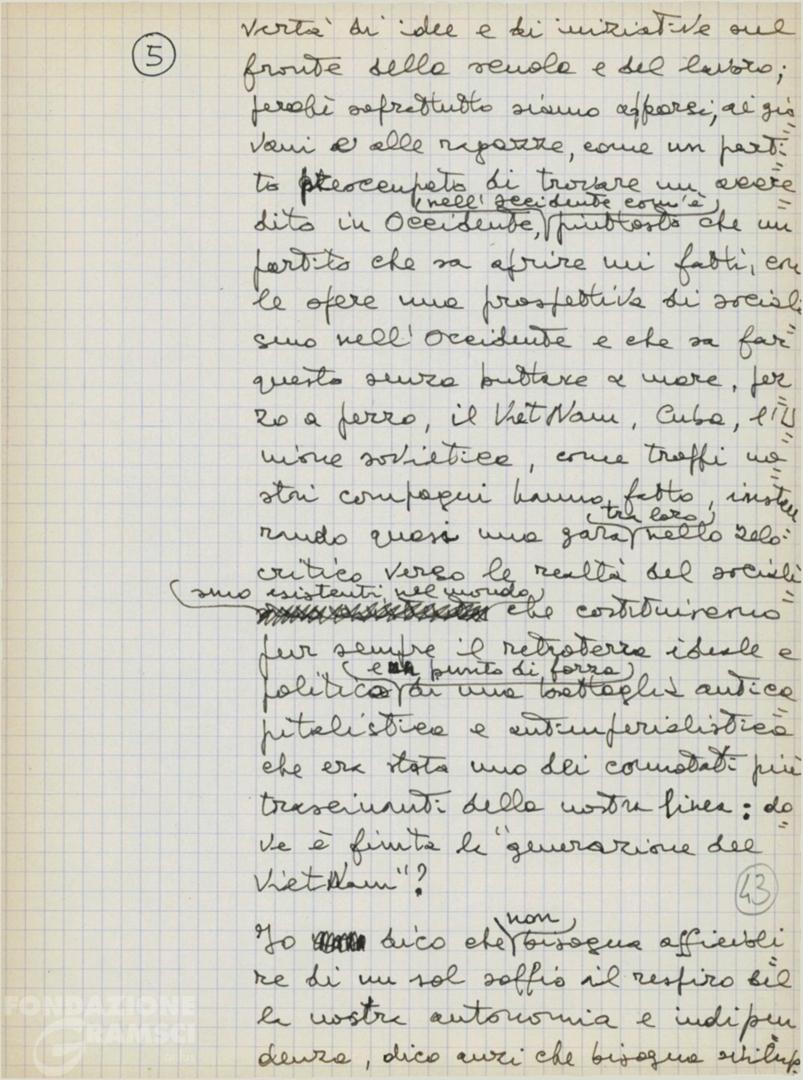 5
vertà di idee e di iniziative sul
fronte della scuola e del lavoro;
perchè soprattutto siamo apparsi, ai gio=
vani e alle ragazze, come un parti=
to preoccupato di trovare un accre=
(nell'occidente com'è)
dito in Occidente, piuttosto che un
partito che sa aprire nei fatti, con
le opere una prospettiva di sociali
smo nell'Occidente e che sa far
questo senza buttare a mare, pez=
zo a pezzo, il Viet Nam, Cuba, l'U=
nione sovietica, come troppi no=
stri compagni hanno fatto, instau
(tra loro)
rando quasi una gara nello zelo
critico verso le realtà del sociali=
(smo esistenti nel mondo)
che costituivano
pur sempre il retroterra ideale e
(e un punto di forza)
politico di una battaglia antica=
pitalistica e antimperialistica
che era stata uno dei connotati più
trascinanti della nostra linea: do=
ve è finita la "generazione del
Viet Nam"?
43
non
Io dico che bisogna affievoli=
re di un sol soffio il respiro del
la nostra autonomia e indipen
denza, dico anzi che bisogna svilup.
FONDAZIONE
GRAMSCI